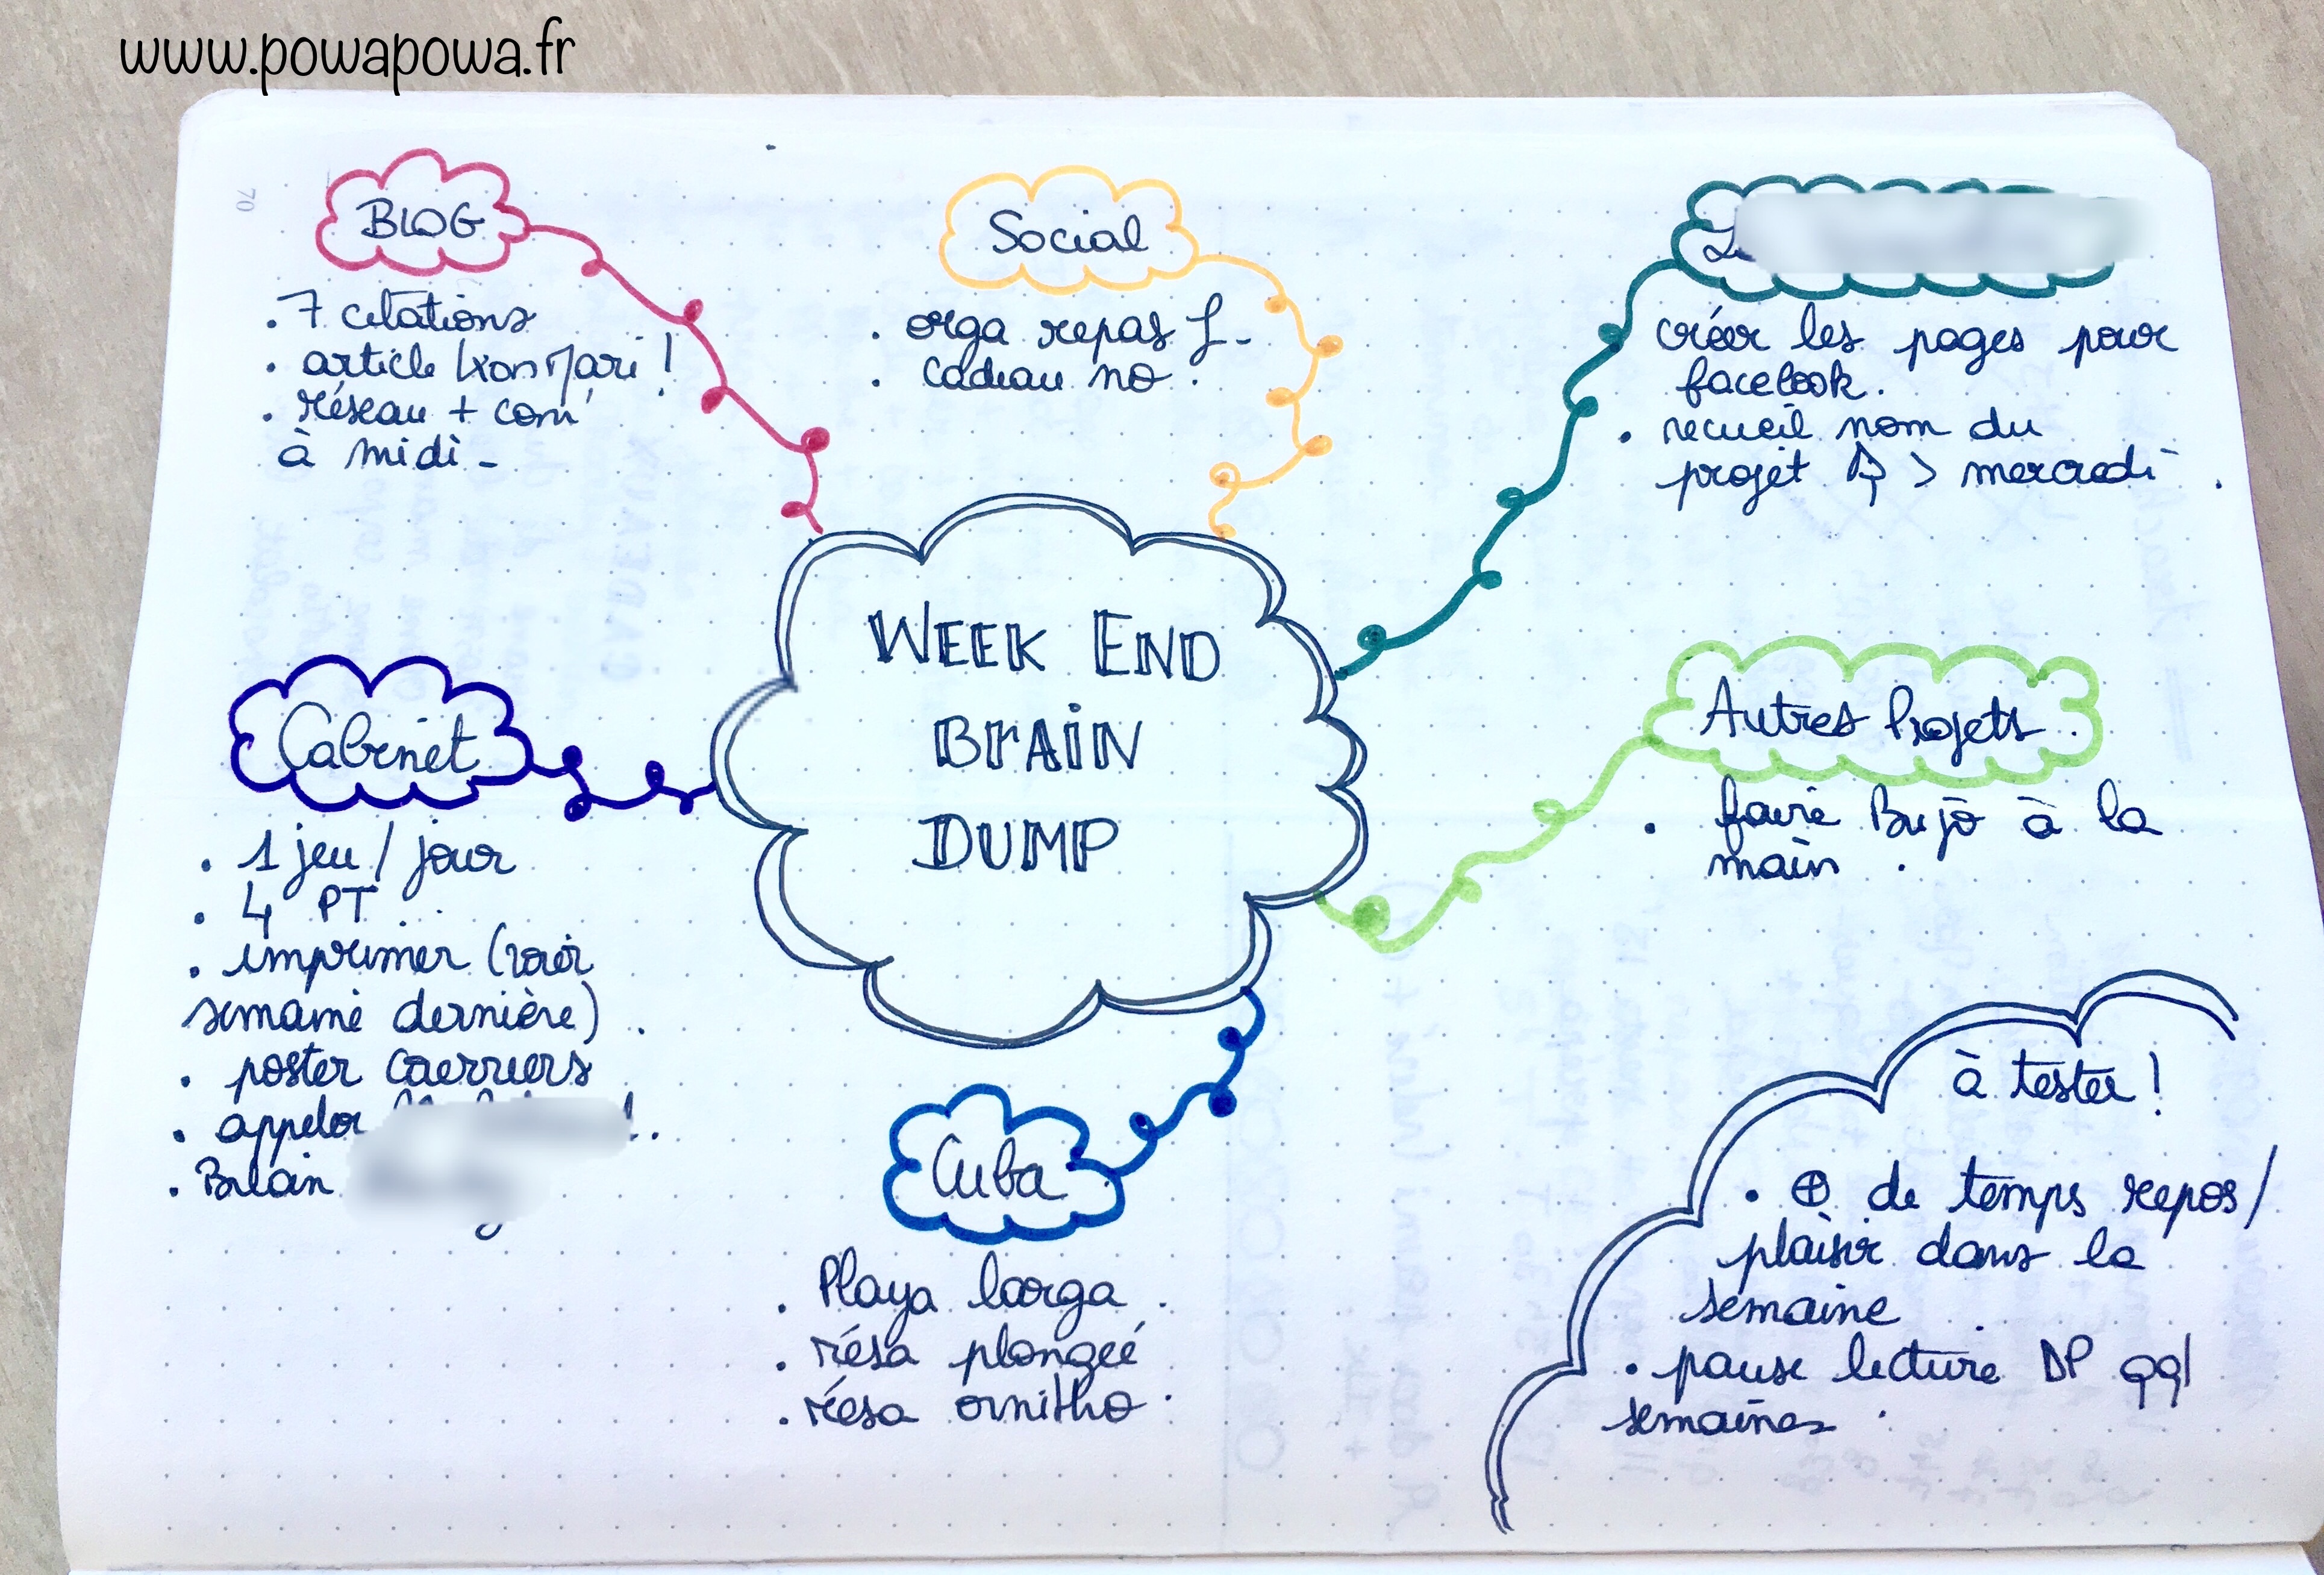 www.powapowa.fr
70
BLOG
. 7 citations
. article KonMari !
. réseau + com'
à midi -
Social
. orga repas L -
. cadeau no .
créer les pages pour
facebook.
. recueil nom du
projet > mercredi .
WEEK END
BRAIN
DUMP
Cabinet
. 1 jeu / jour
. 4 PT
. imprimer (voir
semaine dernière) .
. poster courriers
. appeler
. Bilan
Autres Projets .
. faire Bujo à la
main .
Cuba
. Playa larga .
. résa plongée
. résa ornitho .
à tester !
. ⊕ de temps repos /
plaisir dans la
semaine
. pause lecture DP qql
semaines .